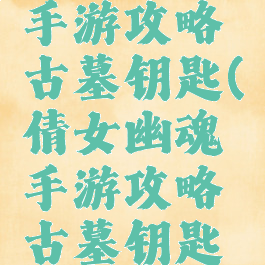 手游攻略
古墓钥匙(
倩女幽魂
手游攻略
古墓钥匙